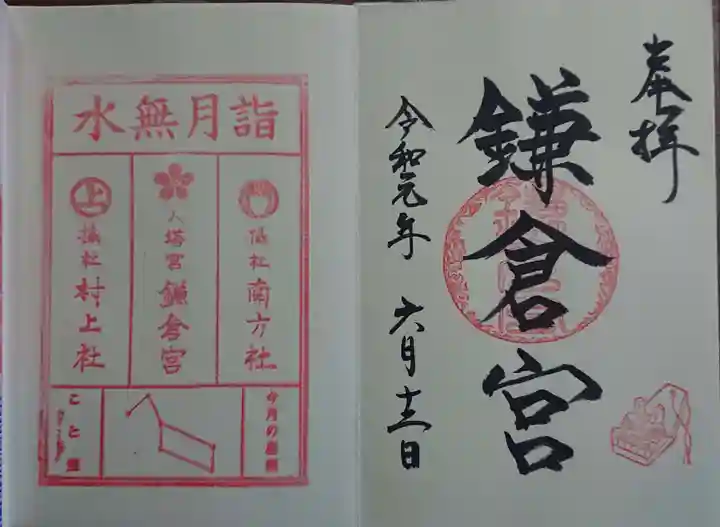 奉拝
鎌倉宮
令和元年 六月十三日
水無月詣
摂社 南方社
大塔宮 鎌倉宮
上
摂社 村上社
今月の星座
こと座